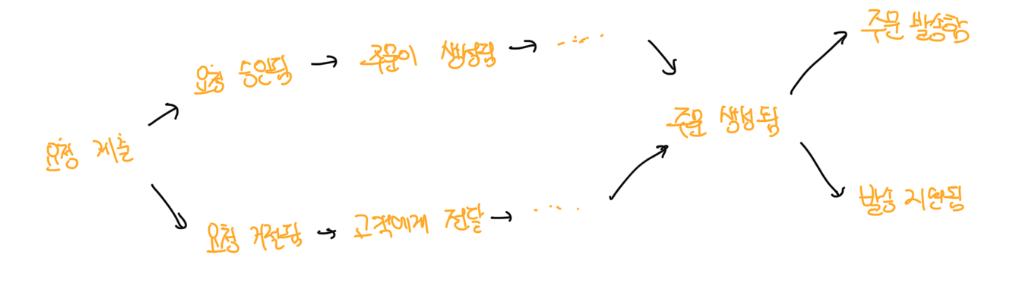 요청 제출
요청 승인됨
주문이 생성됨
.....
요청 거절됨
고객에게 전달
.....
주문 생성됨
주문 발송함
발송 지연됨